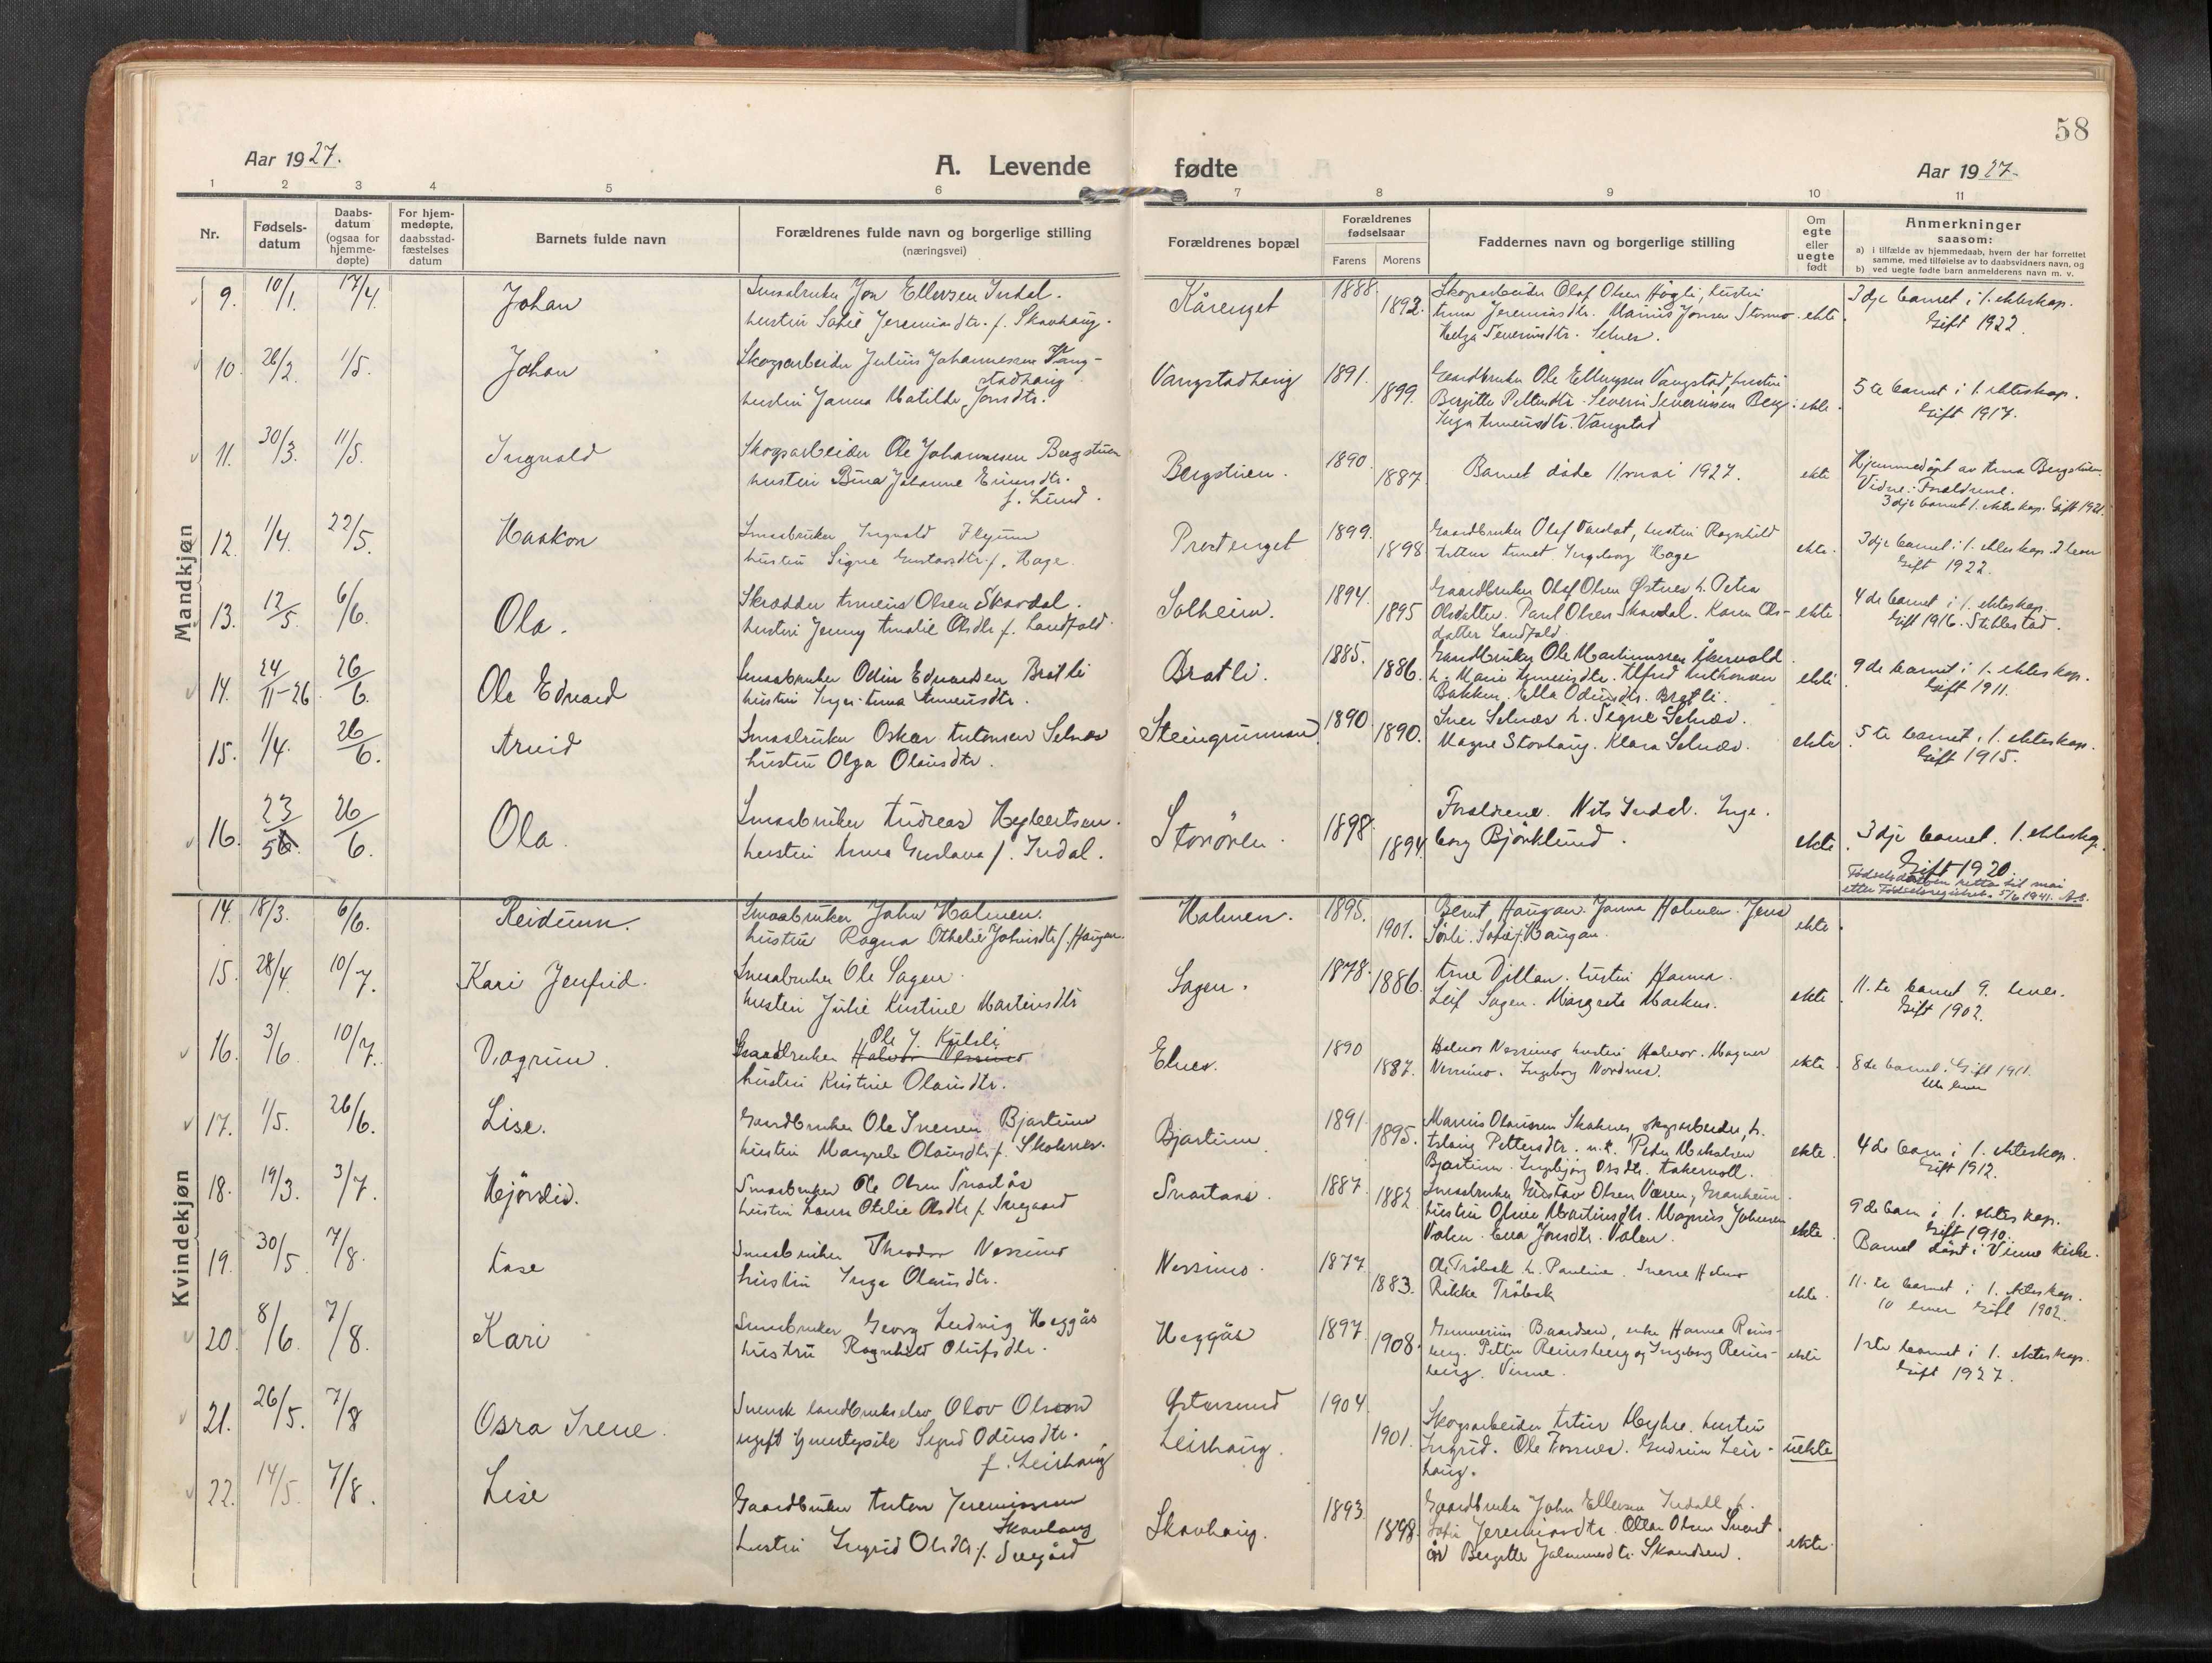 58
Aar 1927.
A. Levende fødte
Aar 1927.
1 2 3 4 5 6 7 8 9 10 11
Nr.
Fødsels-
datum
Daabs-
datum
(ogsaa for
hjemme-
døpte)
For hjem-
medøpte,
daabsstad-
fæstelses
datum
Barnets fulde navn
Forældrenes fulde navn og borgerlige stilling
(næringsvei)
Forældrenes bopæl
Forældrenes
fødselsaar
Farens Morens
Faddernes navn og borgerlige stilling
Om
egte
eller
uegte
født
Anmerkninger
saasom:
a) i tilfælde av hjemmedaab, hvem der har forrettet
samme, med tilføielse av to daabsvidners navn, og
b) ved uegte fødte barn anmelderens navn m. v.
Mandkjøn
9. 10/1. 17/4. Johan
Smaabruker Jon Ellevsen Indal.
hustru Sofie Jeremiasdtr. f. Skavhaug.
Kårenget 1888. 1892.
Skogsarbeider Olaf Olsen Høgli, hustru
Anna Jeremiasdtr. Marius Jonsen Stormo
Helga Sevrinsdtr. Selnes.
ekte.
3dje barnet i 1. ekteskap.
Gift 1922.
10. 26/2. 1/5. Johan
Skogsarbeider Julius Johannessen Vang-
stadhaug
hustru Janna Matilde Jonsdtr.
Vangstadhaug 1891. 1899.
Gaardbruker Ole Ellingsen Vangstad, hustru
Bergitte Pettersdtr. Severin Severinsen Berg
Inga Arneusdtr. Vangstad
ekte.
5te barnet i 1. ekteskap.
Gift 1917.
11. 30/3. 11/5. Ingvald
Skogsarbeider Ole Johannesen Bergstuen
hustru Bina Johanne Einusdtr.
f. Lund.
Bergstuen. 1890. 1887.
Barnet døde 11 mai 1927.
ekte
Hjemmedøpt av Anna Bergstuen.
Vidne: Foreldrene.
3dje barnet 1. ekteskap. Gift 1921.
12. 1/4. 22/5. Haakon
Smaabruker Ingvald Flyum
hustru Signe Gustavsdtr. f. Hage.
Prestenget 1899. 1898
Gaardbruker Olaf Vardal, hustru Ragnhild
Ingeborg Hage
ekte.
3dje barnet i 1. ekteskap. 2 lever
Gift 1922.
13. 12/5. 6/6. Ola.
Skrædder Arneus Olsen Skavdal.
hustru Jenny Amalie Olsdtr f. Landfald.
Solheim. 1894. 1895
Gaardbruker Olaf Olsen Østnes h. Petra
Olsdatter. Paul Olsen Skavdal. Karen Ols-
datter Landfald.
ekte.
4de barnet i 1. ekteskap.
Gift 1916. Stiklestad.
14. 24/11-26. 26/6. Ole Edvard
Smaabruker Odin Edvardsen Bratli
hustru Inger Anna Arneusdtr.
Bratli. 1885. 1886.
Gaardbruker Ole Martinussen Åkervold
h. Marie Arneusdtr. Alfred Antonsen
Bakken. Ella Odinsdtr. Bratli.
ekte
9de barnet i 1. ekteskap.
Gift 1911.
15. 1/4. 26/6. Arvid
Smaabruker Oskar Antonsen Selnes
hustru Olga Olausdtr.
Steingrunnen 1890. 1890.
Iver Selnæs h. Signe Selnæs.
Magne Stovhaug. Klara Selnæs.
ekte
5te barnet i 1. ekteskap.
Gift 1915.
16. 23/5. 26/6. Ola.
Smaabruker Andreas Heggbertsen.
hustru Anna Gustava f. Indal.
Storrören. 1898. 1894.
Foreldrene. Nils Indal. Inge-
borg Bjørklund.
ekte
3dje barnet. 1. ekteskap.
Gift 1920
Fødselsdatoen rettet til mai
etter Fødselsregistret. 5/6 1941. A.S.
Kvindekjøn
14. 18/3. 6/6. Reidunn.
Smaabruker John Holmen.
hustru Ragna Othelie Johnsdtr f. Haugan.
Holmen. 1895. 1901.
Bernt Haugan. Janna Holmen. Jens
Sørli. Sofie Haugan.
ekte
15. 28/4. 10/7. Kari Jenfrid.
Smaabruker Ole Sagen.
hustru Julie Kristine Martinsdtr
Sagen. 1878. 1886.
Arne Dillan. hustru Hanna.
Leif Sagen. Margrete Markus.
ekte
11.te barnet 9. lever.
Gift 1902.
16. 3/6. 10/7. Dagrun.
Ole J. Kulsli
Gaardbruker Halvor Nessimo
hustru Kristine Olausdtr.
Elnes. 1890 1887.
Halvor Nessimo hustru Halvor. Magner
Nessimo. Ingeborg Nordnes.
ekte
8de barnet. Gift 1911.
alle lever
17. 1/5. 26/6. Lise.
Gaardbruker Ole Iversen Bjartum
hustru Margrete Olausdtr f. Skoknes.
Bjartum 1891. 1895.
Marius Olausen Skoknes, skogsarbeider, h.
Aslaug Pettersdtr. u.k. Peder Mikalsen
Bjartum. Ingebjørg Olsdtr. Aakervoll.
ekte
4de barn i 1. ekteskap.
Gift 1912.
18. 19/3. 3/7. Hjördis.
Smaabruker Ole Olsen Snartås
hustru Laura Otilie Olsdtr f. Svegaard
Svartaas. 1887. 1882
Smaabruker Gustav Olsen Væren, Granheim.
hustru Oline Martinsdtr. Magnus Johnsen
Volen. Eva Jonsdtr. Volen.
ekte
9de barn i 1. ekteskap.
Gift 1910.
Barnet døpt i Vinne kirke.
19. 30/5. 7/8. Aase
Smaabruker Theodor Nessimo
hustru Inga Olausdtr.
Nessimo. 1877. 1883.
Ole Tröbak h. Pauline. Sverre Holmo
Rikke Tröbak
ekte.
11.te barnet i 1. ekteskap.
10 lever Gift 1902.
20. 8/6. 7/8. Kari
Smaabruker Georg Ludvig Heggås
hustru Ragnhild Olufsdtr.
Heggås 1897. 1908.
Gunnerius Baardsen, enke Hanna Reins-
berg. Petter Reinsberg og Ingeborg Reins-
berg. Vinne.
ekte
1ste barnet i 1. ekteskap.
Gift 1927.
21. 26/5. 7/8 Osra Irene.
Svensk landbrukselev Olov Olsson
ugift Sigrid Odinsdtr.
f. Leirhaug
Østersund
Leirhaug. 1904. 1901.
Skogsarbeider Artur Myhre. hustru
Ingrid. Ole Fornes. Gudrun Leir-
haug.
uekte
22. 14/5. 7/8. Lise
Gaardbruker Anton Jeremiassen
Skavhaug
hustru Ingrid Olsdtr. f. Svegård
Skavhaug. 1893. 1898.
Gaardbruker John Ellevsen Indall h.
Sofie Jeremiasdtr. Ottar Olsen Svart-
ås Bergitte Johannesdtr. Skandsen.
ekte.